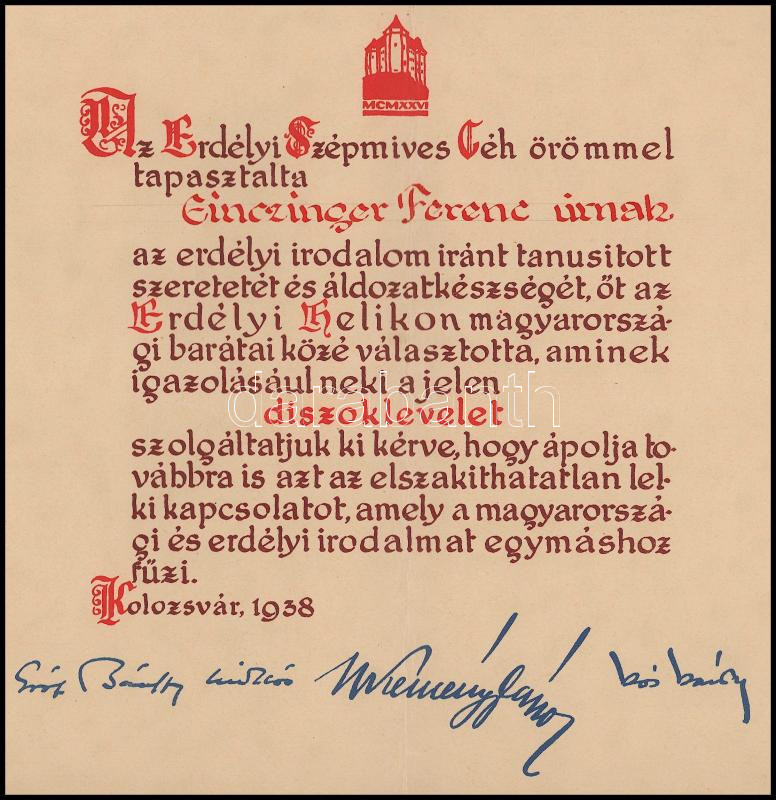 MCMXXVI
Az Erdélyi Szépmives Céh örömmel
tapasztalta
Einczinger Ferenc úrnak
az erdélyi irodalom iránt tanusitott
szeretetét és áldozatkészségét, őt az
Erdélyi Helikon magyarorszá-
gi barátai közé választotta, aminek
igazolásául neki a jelen
diszoklevelet
szolgáltatjuk ki kérve, hogy ápolja to-
vábbra is azt az elszakithatatlan lel-
ki kapcsolatot, amely a magyarorszá-
gi és erdélyi irodalmat egymáshoz
fűzi.
Kolozsvár, 1938
Gróf Bánffy Miklós Kemény János Kós Károly
darabanth